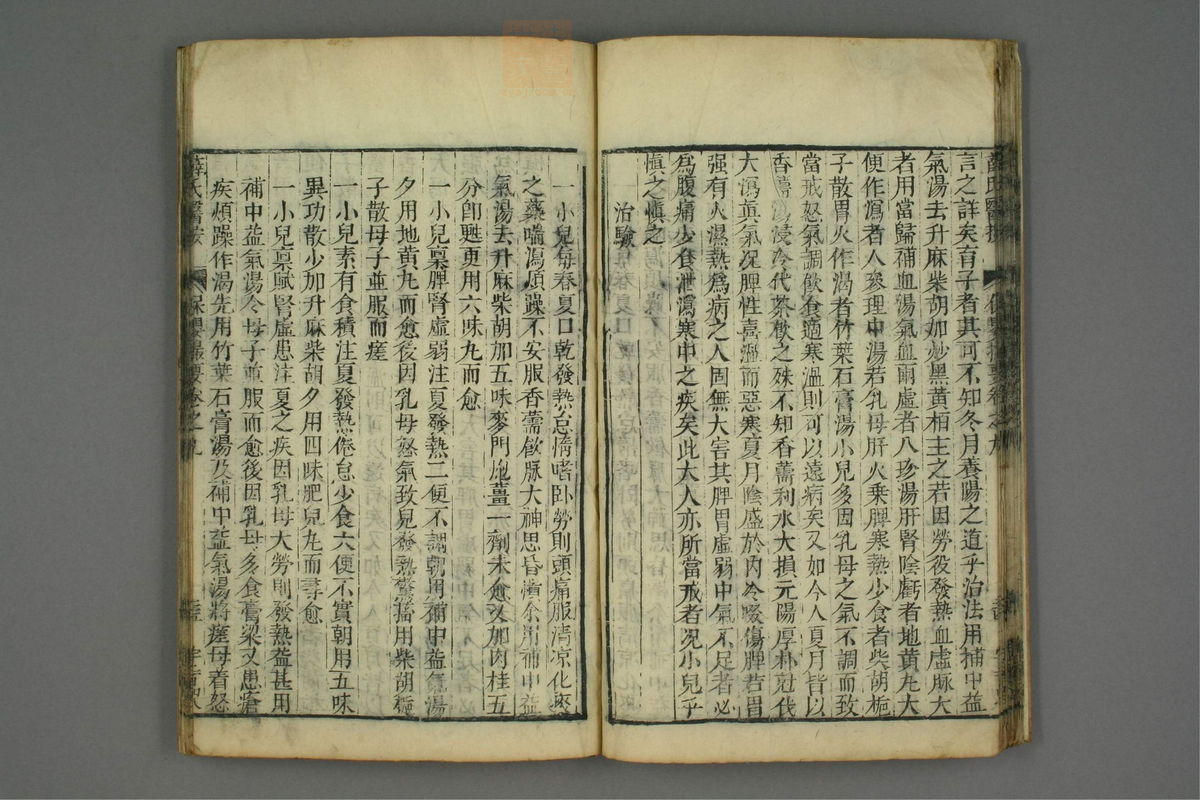 言之詳矣有子者其可不知冬月養陽之道乎治法用補中益
氣湯去升麻柴胡加炒黑黃柏主之若因勞役發熱血虛脉大
者用當歸補血湯氣血兩虛者八珍湯肝腎陰虧者地黃丸大
便作瀉者人參理中湯若乳母肝火乘脾寒熱少食者柴胡梔
子散胃火作渴者竹葉石膏湯小兒多因乳母之氣不調而致
當戒怒氣調飲食適寒溫則可以遠病矣又如今人夏月皆以
香薷湯浸冷代茶飲之殊不知香薷利水大損元陽厚朴尅伐
大瀉真氣况脾性喜溫而惡寒夏月陰盛於內冷啜傷脾若胃
强有火濕熱爲病之人固無大害其脾胃虛弱中氣不足者必
爲腹痛少食泄瀉寒中之疾矣此大人亦所當戒者况小兒乎
慎之慎之
治驗
一小兒每春夏口乾發熱怠惰嗜卧勞則頭痛服清凉化痰
之藥喘瀉煩躁不安服香薷飲脉大神思昏憒余用補中益
氣湯去升麻柴胡加五味麥門炮薑一劑未愈又加肉桂五
分卽甦更用六味丸而愈
一小兒禀脾腎虛弱注夏發熱二便不調朝用補中益氣湯
夕用地黃丸而愈後因乳母怒氣致兒發熱驚搐用柴胡梔
子散母子並服而瘥
一小兒素有食積注夏發熱倦怠少食大便不實朝用五味
異功散少加升麻柴胡夕用四味肥兒丸而尋愈
一小兒禀賦腎虛患注夏之疾因乳母大勞則發熱益甚用
補中益氣湯令母子並服而愈後因乳母多食膏粱又患瘡
疾煩躁作渴先用竹葉石膏湯及補中益氣湯將瘥母着怒
薛氏醫按
保嬰撮要卷之九